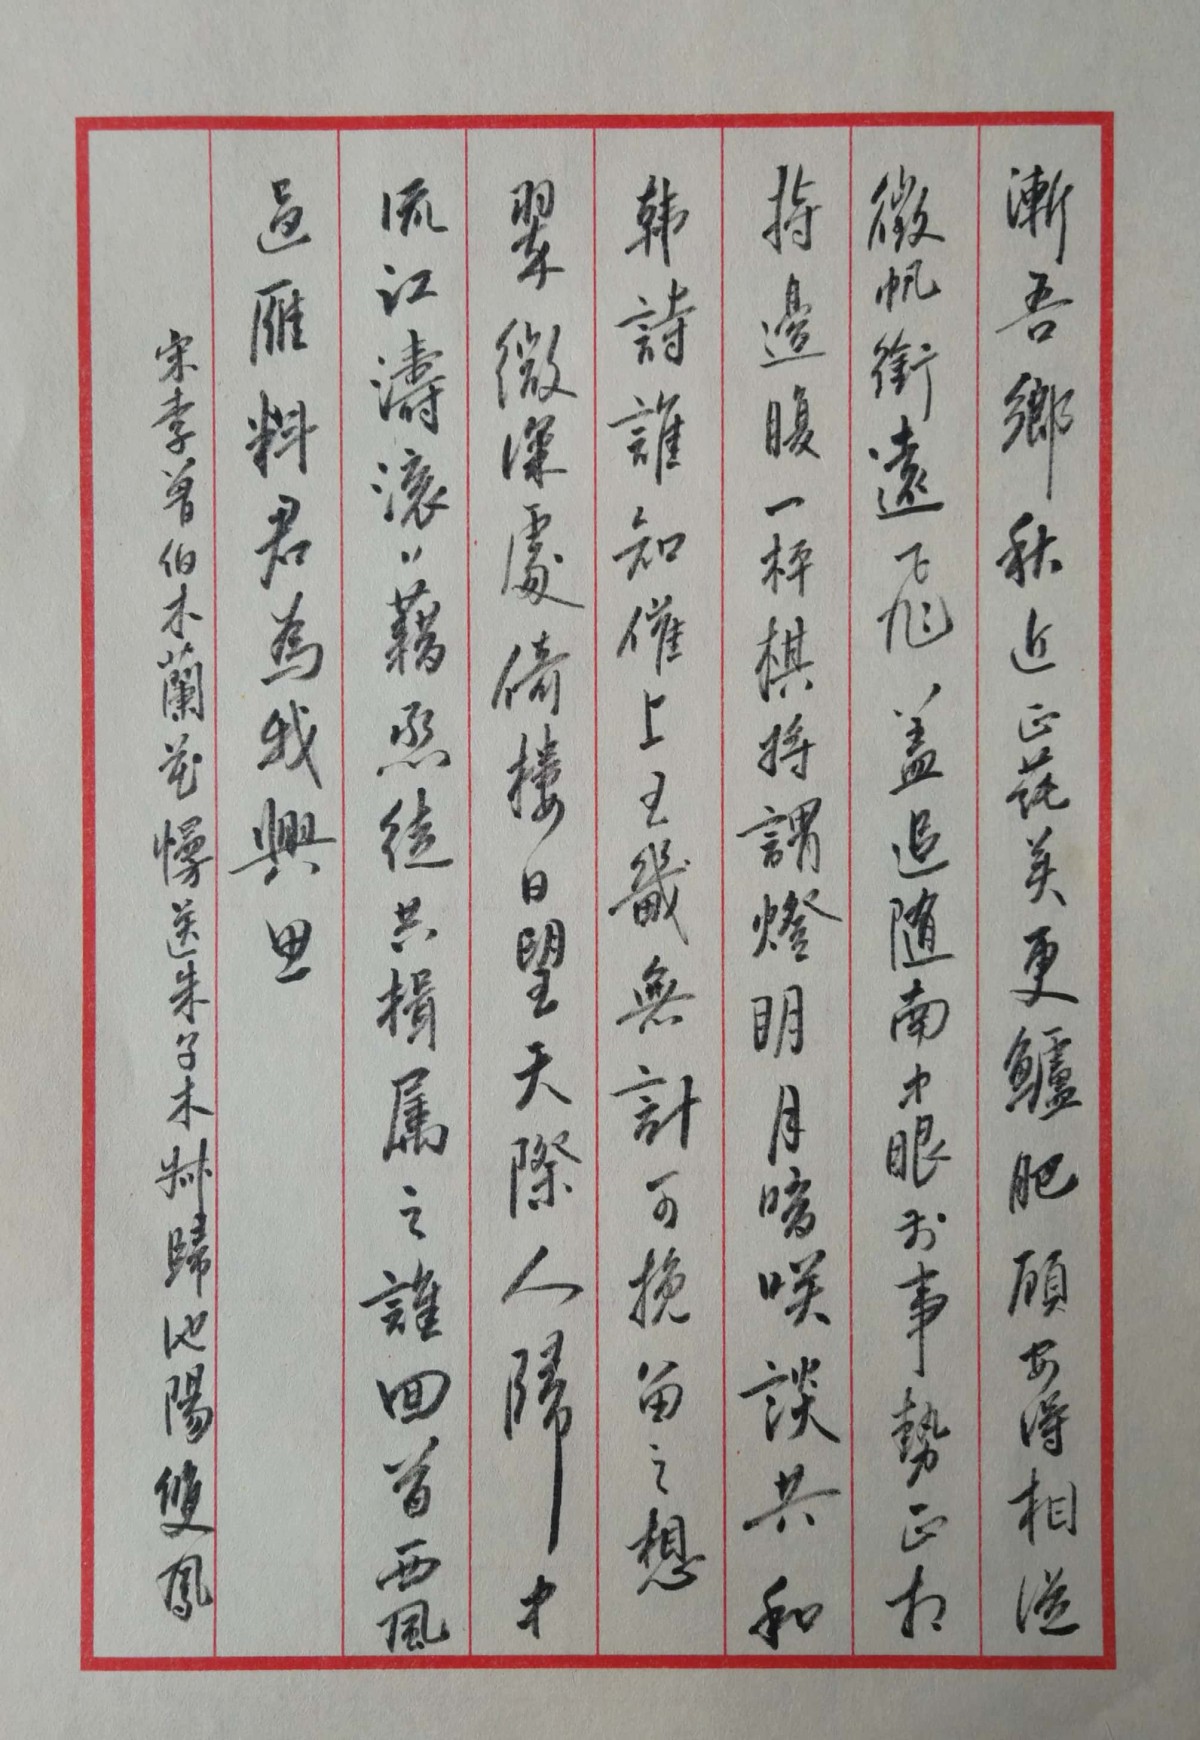 漸吾鄉秋近正莼美更鱸肥顧安得相從
徵帆衝遠飛蓋追隨南中眼於事勢正相
持邊腹一枰棋將謂燈明月暗咲談共和
韩詩誰知催上王畿無計可挽留之想
翠微深處倚樓日望天際人歸中
流江濤滚〻藉烝徒共楫属之誰回首西風
過雁料君為我興思
宋李曾伯木蘭花慢送朱子木叔歸池陽 雙鳳